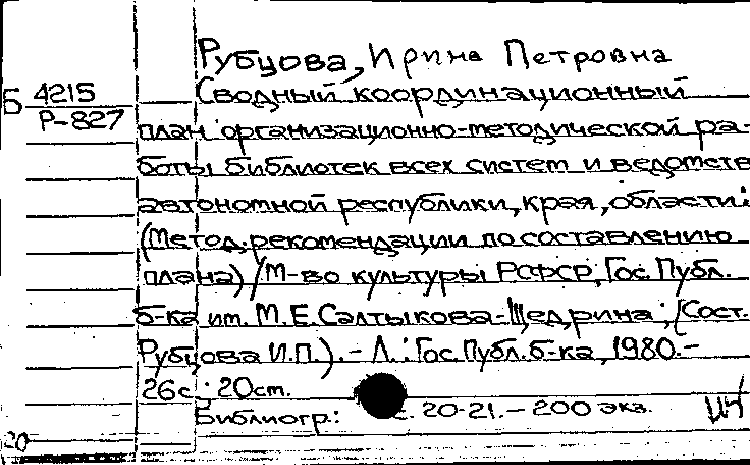 Рубцова, Ирина Петровна
Б 4215
Р-827
Сводный координационный
план организационно-методической ра-
боты библиотек всех систем и ведомств
автономной республики, края, области:
(Метод. рекомендации по составлению
плана) / М-во культуры РСФСР, Гос. Публ.
б-ка им. М. Е. Салтыкова-Щедрина; (Сост.
Рубцова И.П.). - Л.: Гос. Публ. б-ка, 1980.-
26с.; 20ст.
Библиогр.: с. 20-21. - 200 экз.
20